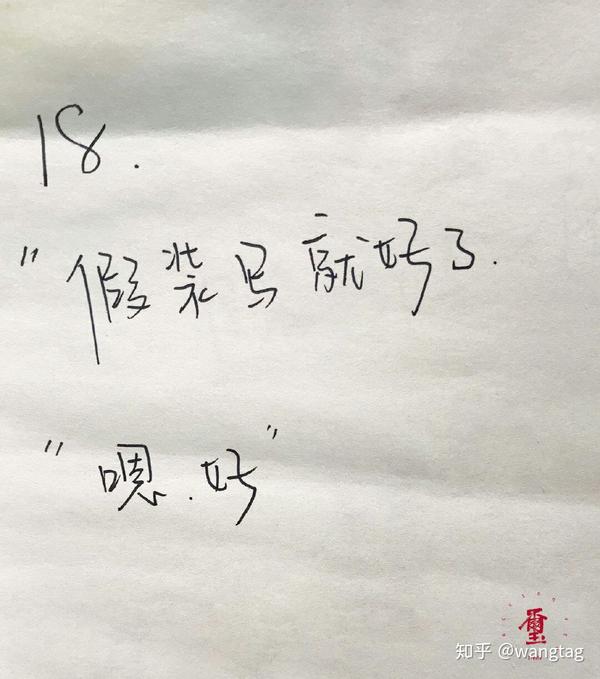 18.
"假装写就好了.
"嗯.好"
玺
知乎 @wangtag